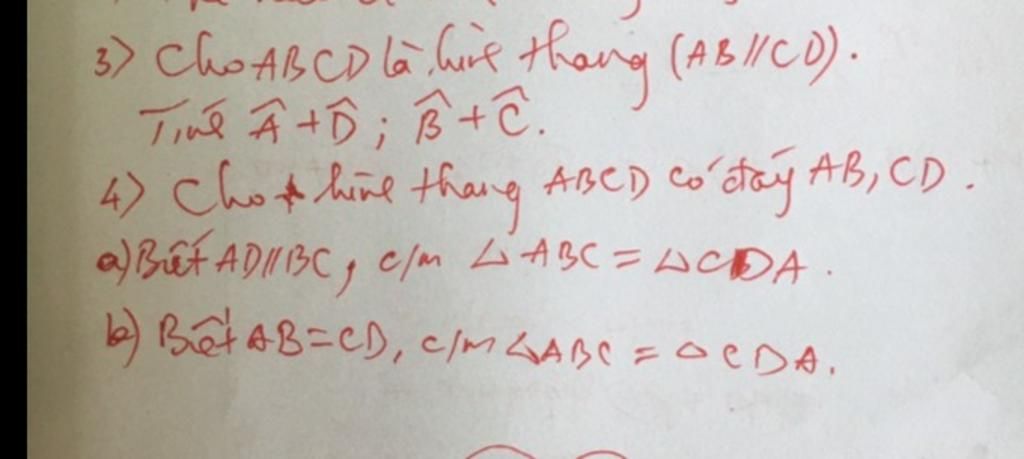 3) Cho ABCD là hình thang (AB//CD).
Tính Â + D̂ ; B̂ + Ĉ.
4) Cho hình thang ABCD có đáy AB, CD.
a) Biết AD//BC, c/m △ABC = △CDA.
b) Biết AB = CD, c/m △ABC = △CDA.